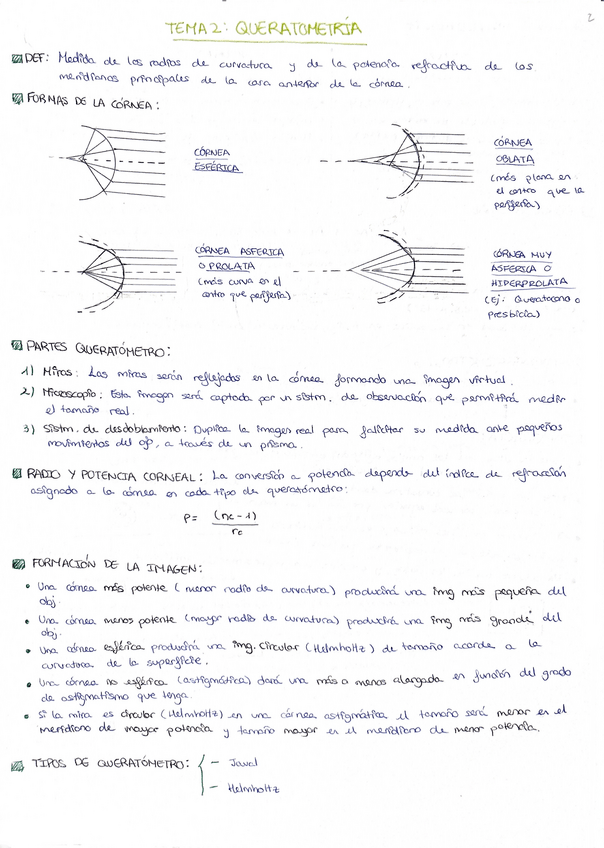 2
TEMA 2: QUERATOMETRÍA
DEF: Medida de los radios de curvatura y de la potencia refractiva de los
meridianos principales de la cara anterior de la córnea.
FORMAS DE LA CÓRNEA:
CÓRNEA
ESFÉRICA
CÓRNEA
OBLATA
(más plana en
el centro que la
periferia)
CÓRNEA ASFERICA
O PROLATA
(más curva en el
centro que periferia)
CÓRNEA MUY
ASFERICA O
HIPERPROLATA
(Ej: Queratocono o
presbicia)
PARTES QUERATÓMETRO:
1) Miras: Las miras serán reflejadas en la córnea formando una imagen virtual.
2) Microscopio: Esta imagen será captada por un sistm. de observación que permitirá medir
el tamaño real.
3) Sistm. de desdoblamiento: Duplica la imagen real para falicitar su medida ante pequeños
movimientos del ojo, a través de un prisma.
RADIO Y POTENCIA CORNEAL: La conversión a potencia depende del índice de refracción
asignado a la córnea en cada tipo de queratómetro:
P = (nc - 1)
rc
FORMACIÓN DE LA IMAGEN:
• Una córnea más potente (menor radio de curvatura) producirá una img más pequeña del
obj.
• Una córnea menos potente (mayor radio de curvatura) producirá una img más grande del
obj.
• Una córnea esférica producirá una img. circular (Helmholtz) de tamaño acorde a la
curvatura de la superficie.
• Una córnea no esférica (astigmática) dará una más o menos alargada en función del grado
de astigmatismo que tenga.
• Si la mira es circular (Helmholtz) en una córnea astigmática el tamaño será menor en el
meridiano de mayor potencia y tamaño mayor en el meridiano de menor potencia.
TIPOS DE QUERATÓMETRO: - Javal
- Helmholtz